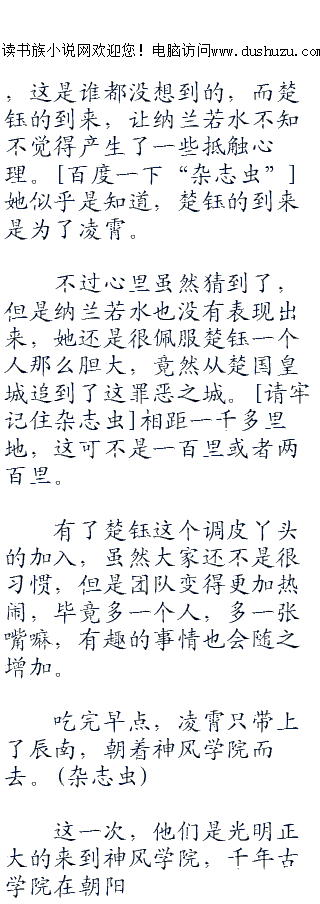 读书族小说网欢迎您！电脑访问www.dushuzu.com
，这是谁都没想到的，而楚
钰的到来，让纳兰若水不知
不觉得产生了一些抵触心
理。[百度一下“杂志虫”]
她似乎是知道，楚钰的到来
是为了凌霄。
不过心里虽然猜到了，
但是纳兰若水也没有表现出
来，她还是很佩服楚钰一个
人那么胆大，竟然从楚国皇
城追到了这罪恶之城。[请牢
记住杂志虫]相距一千多里
地，这可不是一百里或者两
百里。
有了楚钰这个调皮丫头
的加入，虽然大家还不是很
习惯，但是团队变得更加热
闹，毕竟多一个人，多一张
嘴嘛，有趣的事情也会随之
增加。
吃完早点，凌霄只带上
了辰南，朝着神风学院而
去。(杂志虫)
这一次，他们是光明正
大的来到神风学院，千年古
学院在朝阳